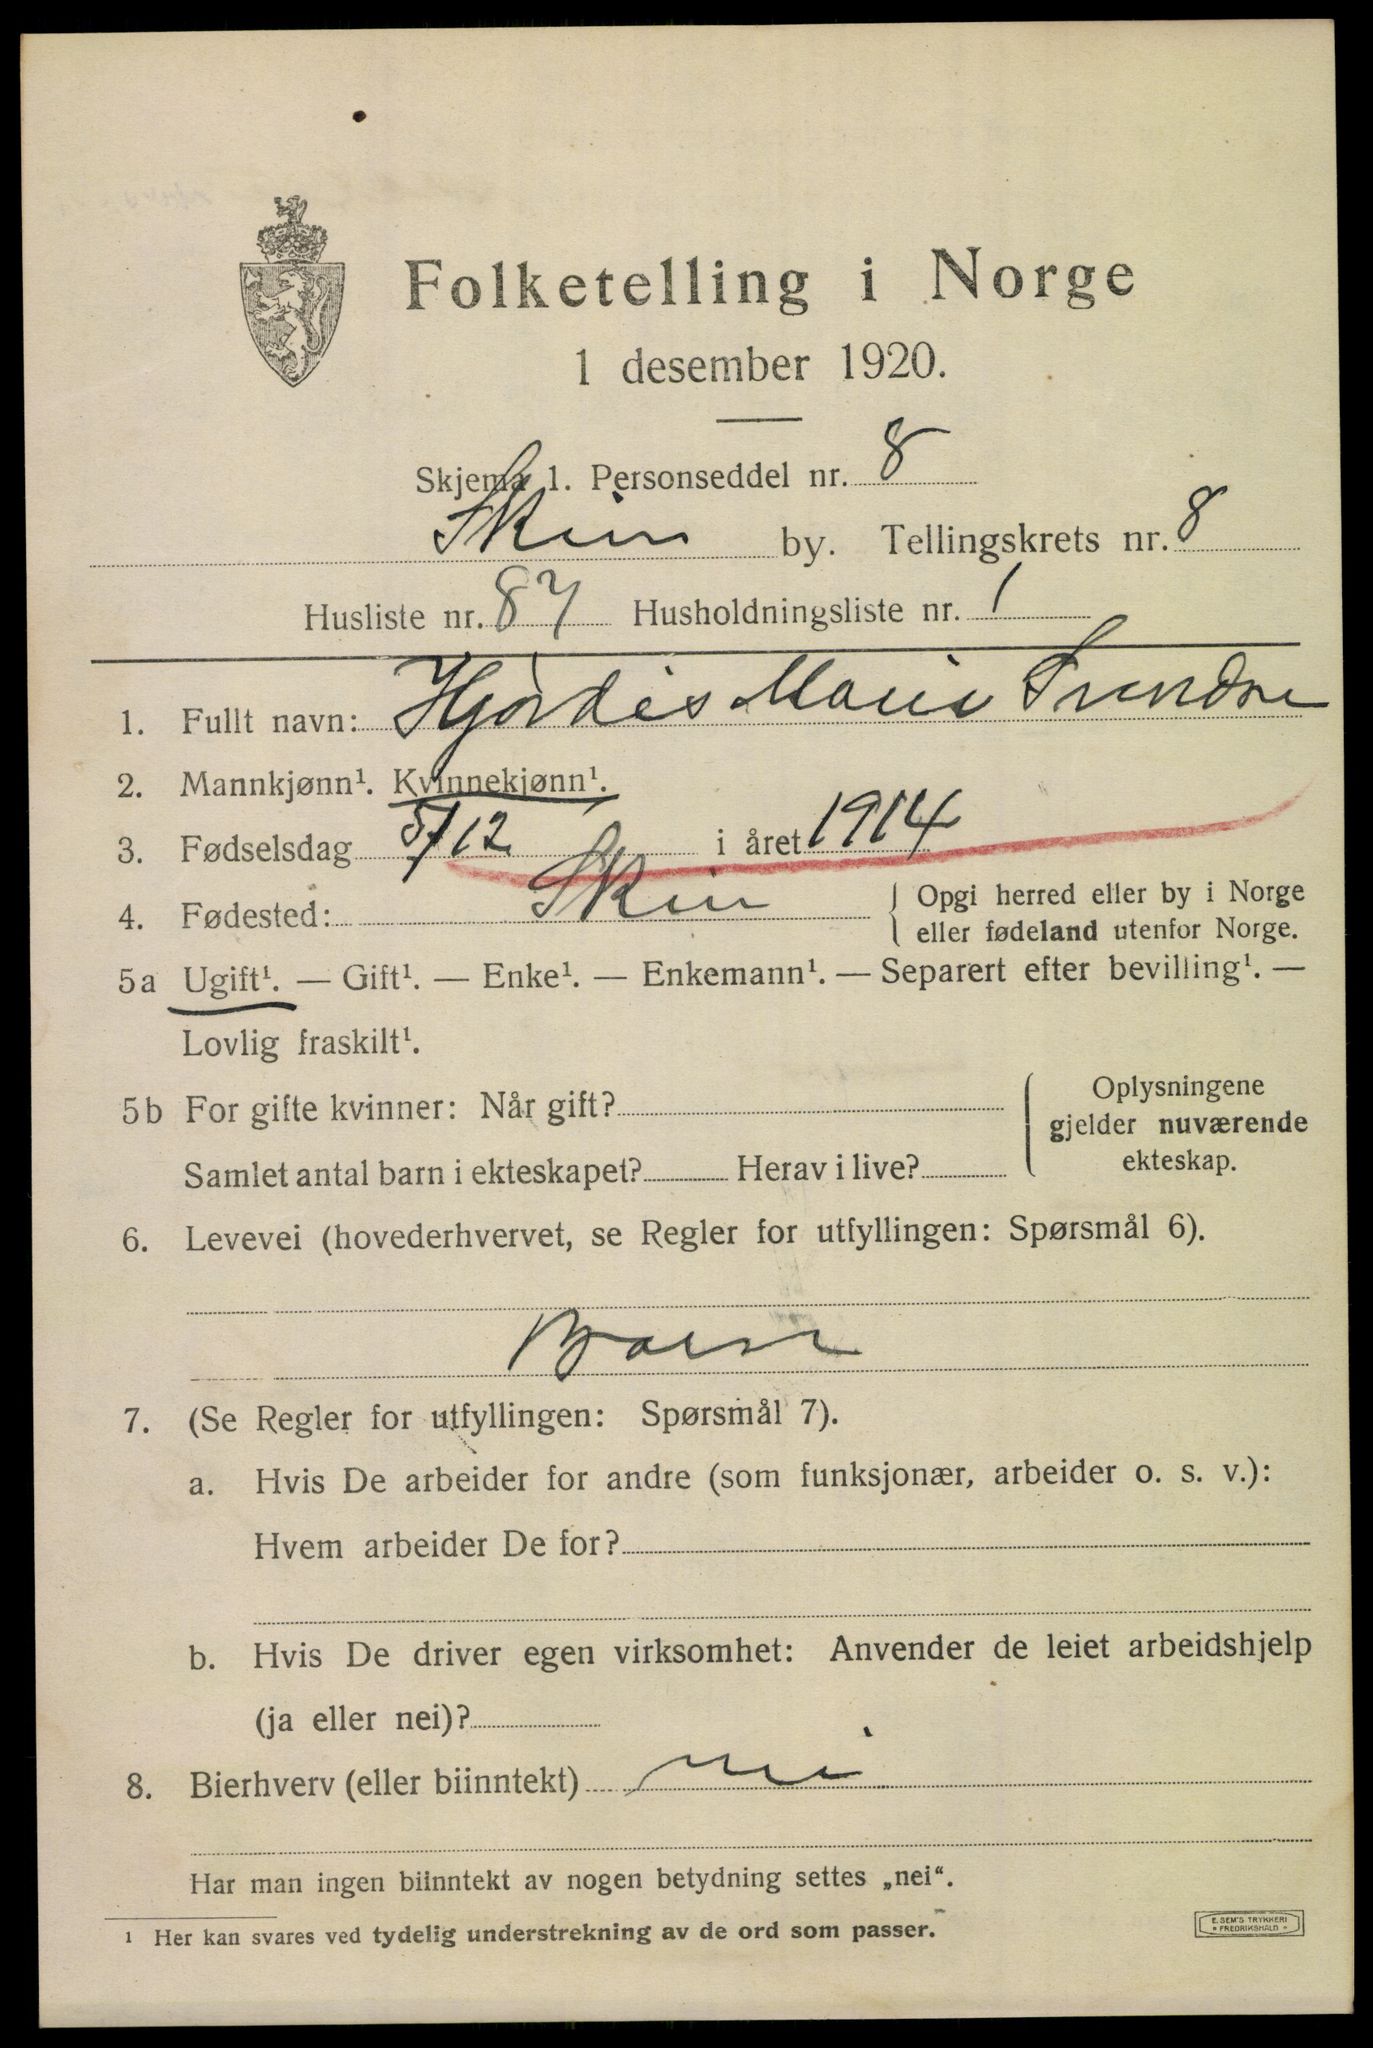 Folketelling i Norge
1 desember 1920.
Skjema 1. Personseddel nr. 8
Skien by. Tellingskrets nr. 8
Husliste nr. 87 Husholdningsliste nr. 1
1. Fullt navn: Hjördis Marie
2. Mannkjønn¹. Kvinnekjønn¹.
3. Fødselsdag 5/12 i året 1914
4. Fødested: Skien { Opgi herred eller by i Norge
eller fødeland utenfor Norge.
5a Ugift¹. — Gift¹. — Enke¹. — Enkemann¹. — Separert efter bevilling¹. —
Lovlig fraskilt¹.
5b For gifte kvinner: Når gift? { Oplysningene
gjelder nuværende
Samlet antal barn i ekteskapet? Herav i live? ekteskap.
6. Levevei (hovederhvervet, se Regler for utfyllingen: Spørsmål 6).
Barn
7. (Se Regler for utfyllingen: Spørsmål 7).
a. Hvis De arbeider for andre (som funksjonær, arbeider o. s. v.):
Hvem arbeider De for?
b. Hvis De driver egen virksomhet: Anvender de leiet arbeidshjelp
(ja eller nei)?
8. Bierhverv (eller biinntekt) nei
Har man ingen biinntekt av nogen betydning settes „nei“.
¹ Her kan svares ved tydelig understrekning av de ord som passer.
E. SEM'S TRYKKERI
* FREDRIKSHALD *